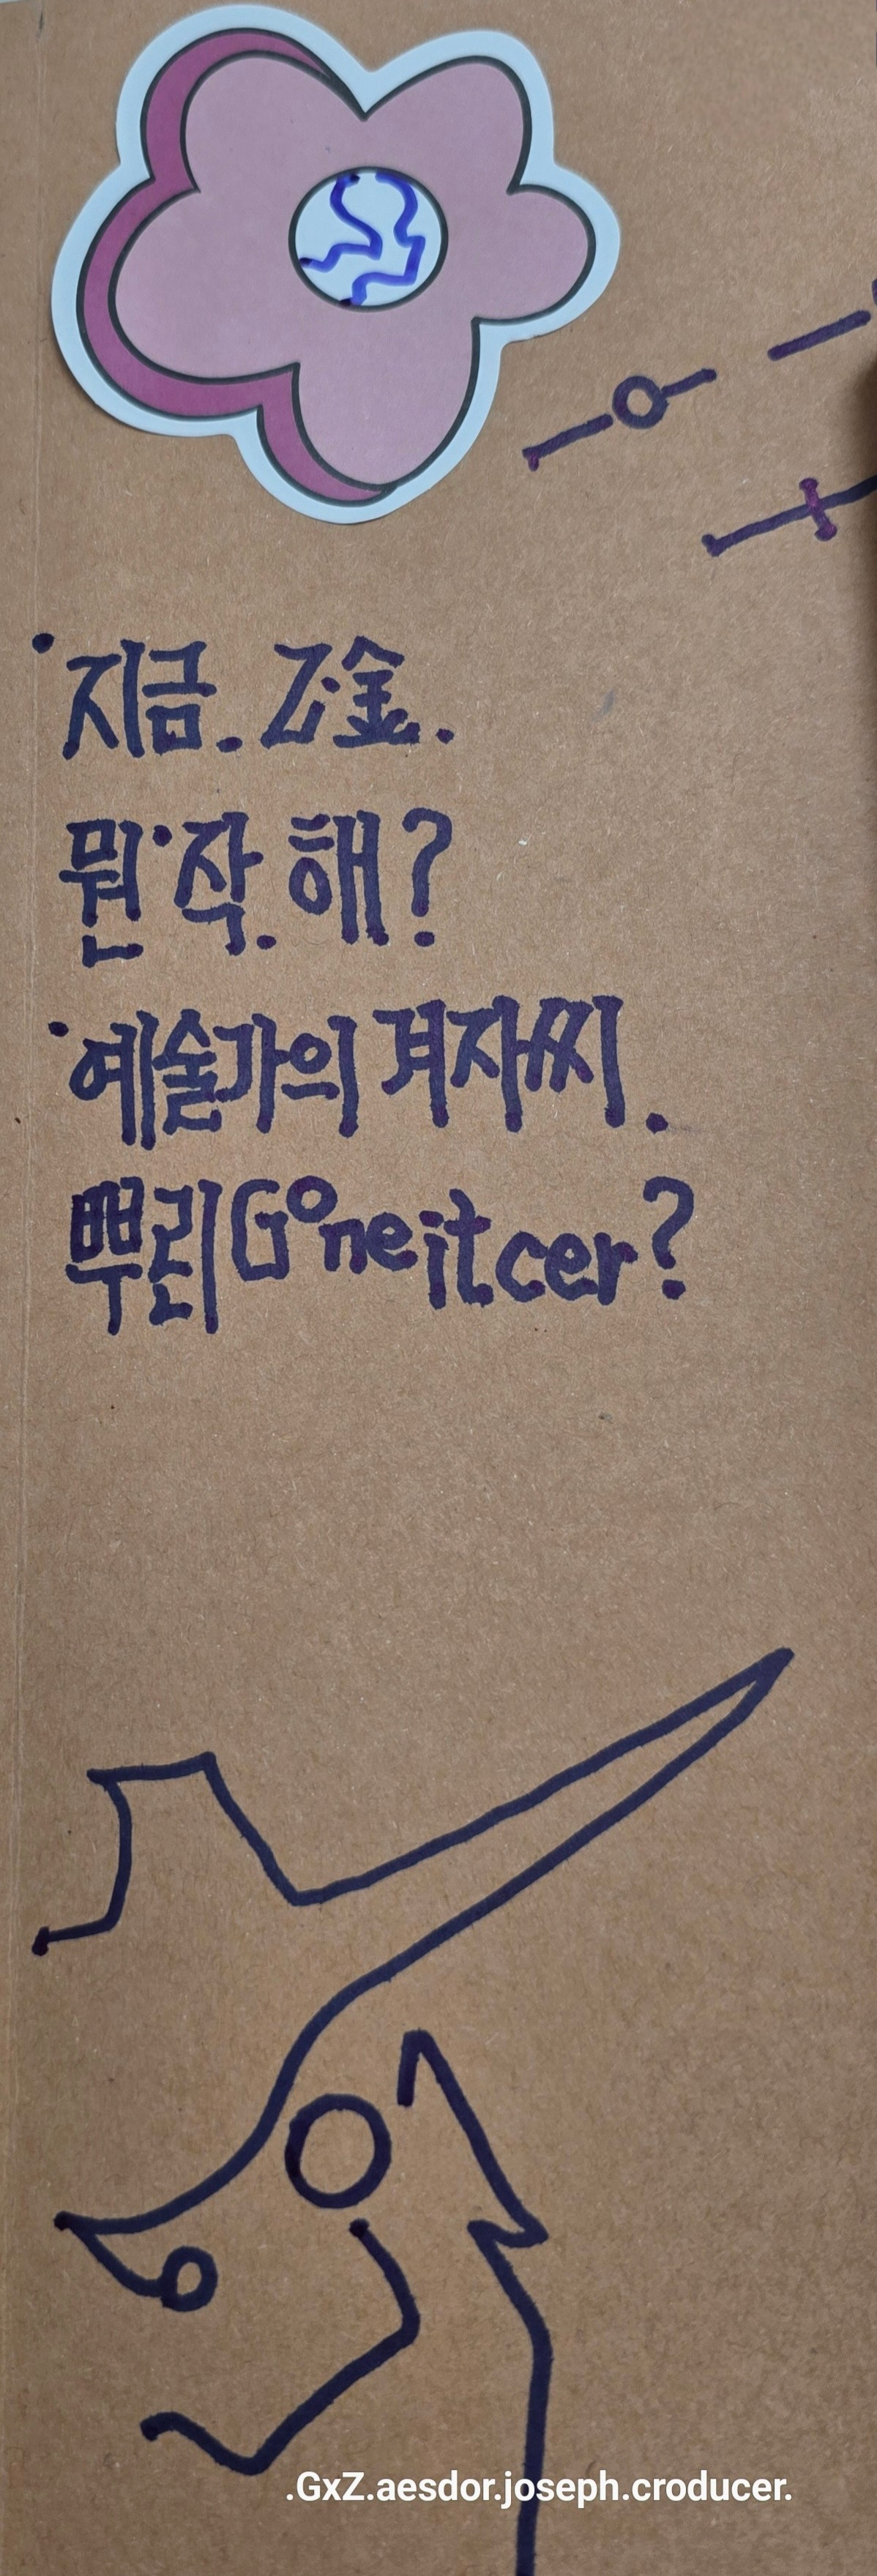 지금. Z金.
뭔작.해?
예술가의 겨자씨.
뿌리Goneitcer?
.GxZ.aesdor.joseph.croducer.